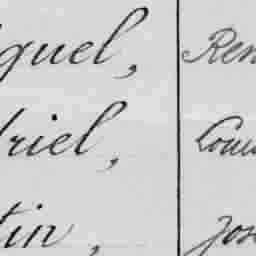 guel, Ren
riel, Loui
tin, Jos